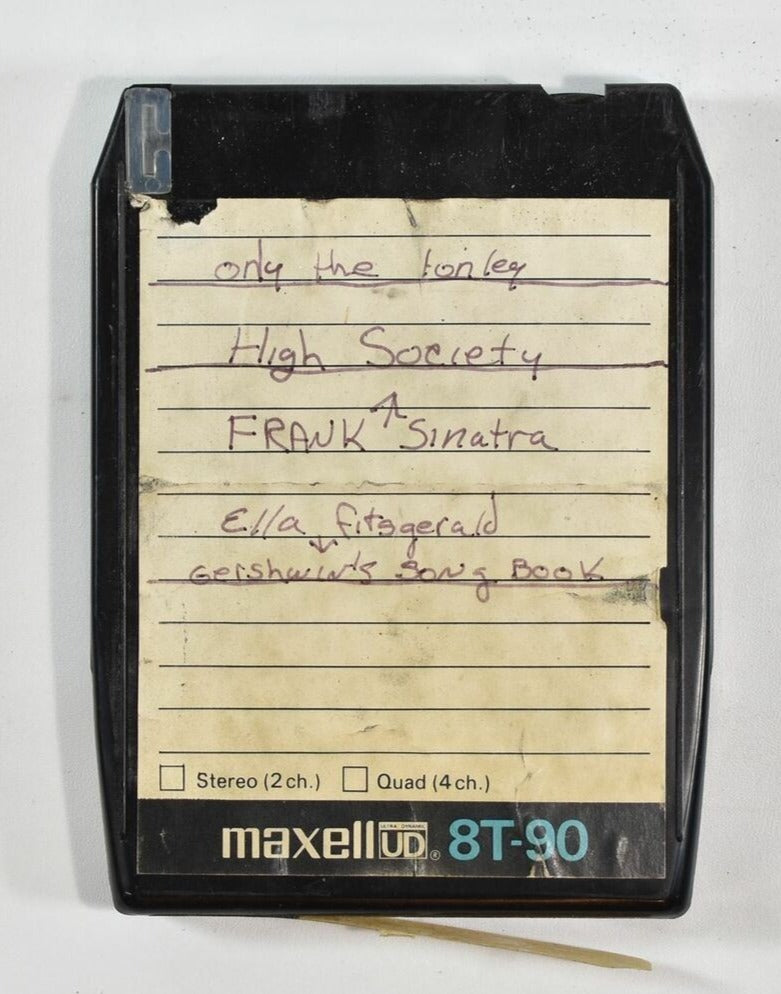 only the lonley
High Society
FRANK Sinatra
Ella fitzgerald
Gershwin's Song Book
Stereo (2 ch.) Quad (4 ch.)
maxell ULTRA DYNAMIC UD® 8T-90